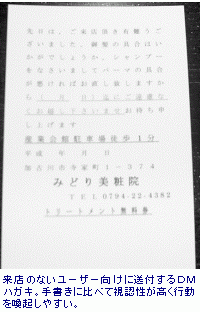 先日は、ご来店頂き有難うご
ざいました。御髪の具合はい
かがでしょうか。シャンプー
をなさいましてパーマの具合
が悪ければお直し致しますか
ら(　月　日)迄にご遠慮な
くお越し下さいませお待ち申
し上げます
産業会館駐車場徒歩1分
平成　年　月　日
加古川市寺家町1-374
みどり美粧院
TEL0794-22-4382
トリートメント無料券
来店のないユーザー向けに送付するDM
ハガキ。手書きに比べて視認性が高く行動
を喚起しやすい。